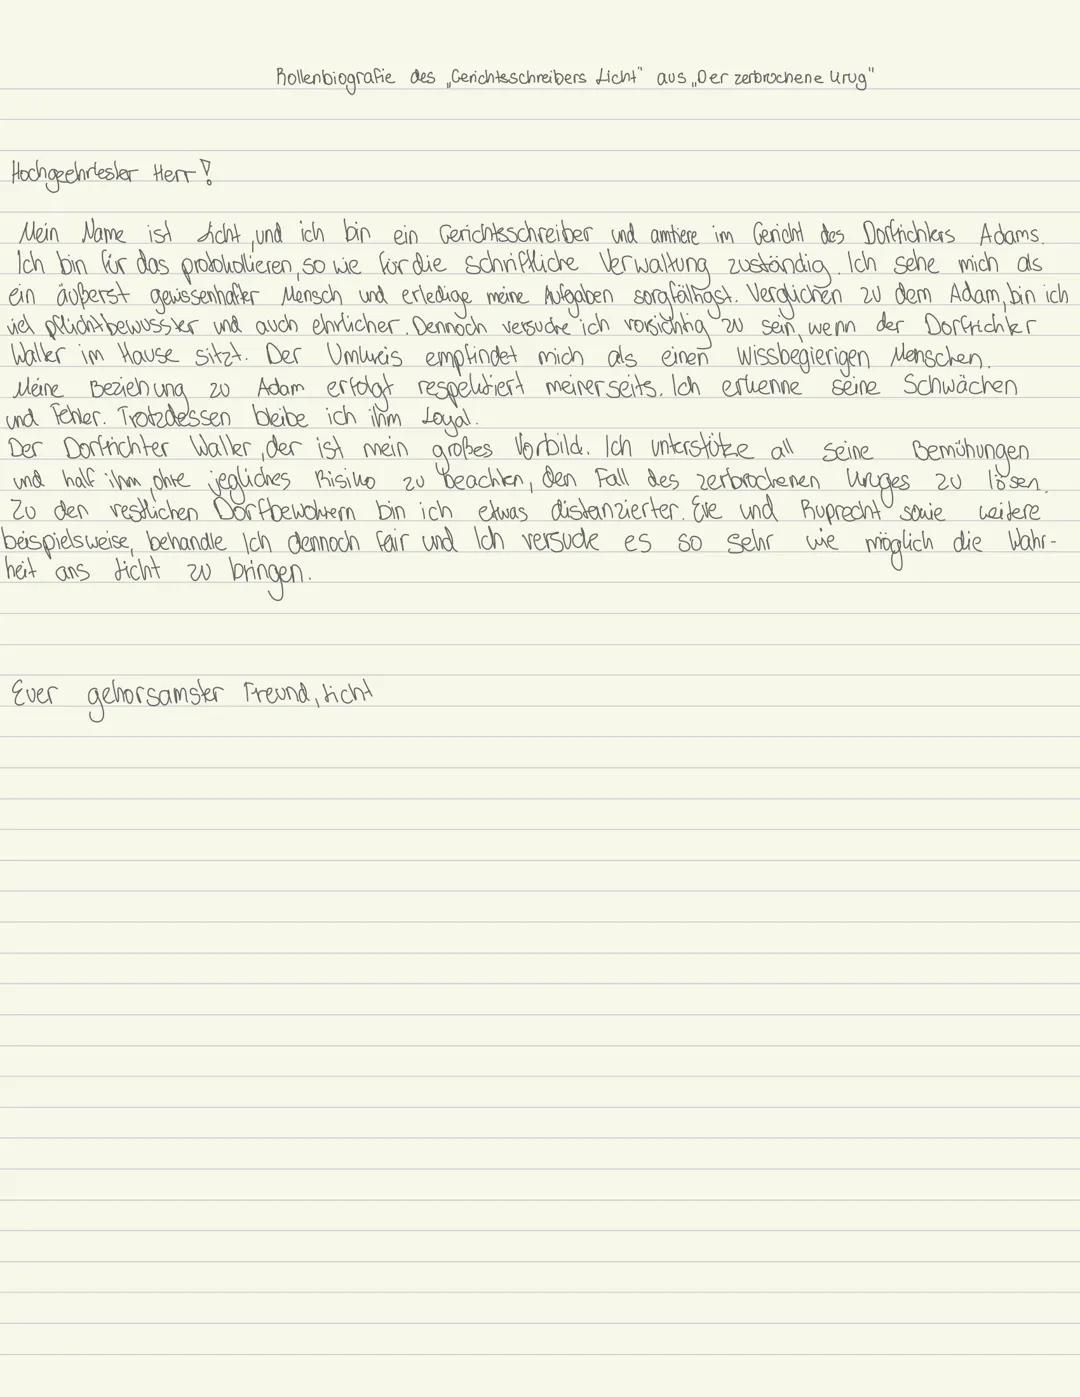 Rollenbiografie des „Gerichtsschreibers Licht" aus „Der zerbrochene Krug"
Hochgeehrtester Herr!
Mein Name ist Licht, und ich bin ein Gerichtsschreiber und amtiere im Gericht des Dorfrichters Adams.
Ich bin für das protokollieren, so wie für die schriftliche Verwaltung zuständig. Ich sehe mich als
ein äußerst gewissenhafter Mensch und erledige meine Aufgaben sorgfältigst. Verglichen zu dem Adam, bin ich
viel pflichtbewusster und auch ehrlicher. Dennoch versuche ich vorsichtig zu sein, wenn der Dorfrichter
Walter im Hause sitzt. Der Umkreis empfindet mich als einen wissbegierigen Menschen.
Meine Beziehung zu Adam erfolgt respektiert meinerseits. Ich erkenne seine Schwächen
und Fehler. Trotzdessen bleibe ich ihm Loyal.
Der Dorfrichter Walter, der ist mein großes Vorbild. Ich unterstütze all seine Bemühungen
und half ihm, ohne jegliches Risiko zu beachten, den Fall des zerbrochenen Kruges zu lösen.
Zu den restlichen Dorfbewohnern bin ich etwas distanzierter. Eve und Ruprecht sowie weitere
beispielsweise, behandle Ich dennoch fair und Ich versuche es so sehr wie möglich die Wahr-
heit ans Licht zu bringen.
Euer gehorsamster Freund, Licht